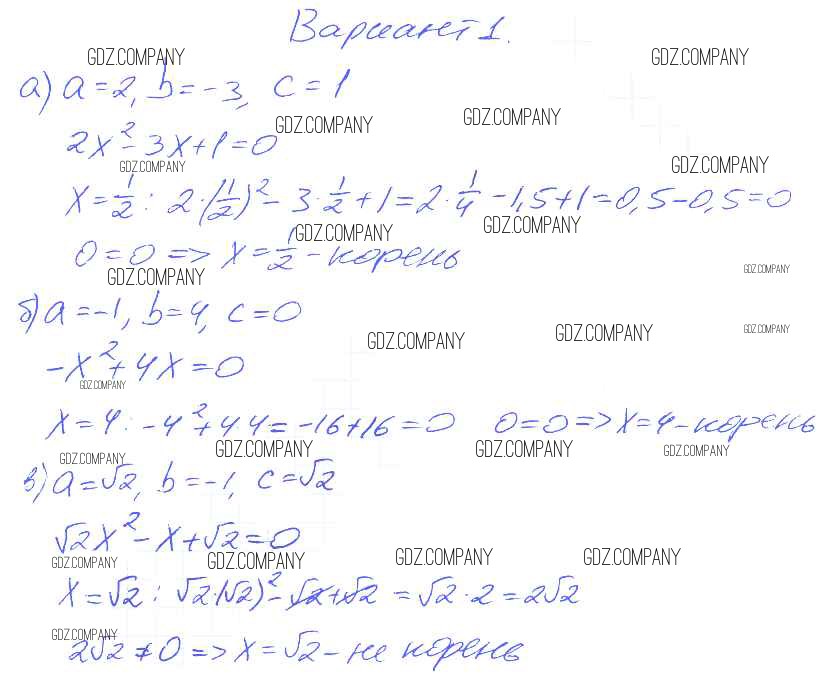 Вариант 1.
GDZ.COMPANY GDZ.COMPANY
а) a=2, b=-3, c=1
GDZ.COMPANY GDZ.COMPANY
2x²-3x+1=0
GDZ.COMPANY GDZ.COMPANY
x=1/2: 2·(1/2)²-3·1/2+1=2·1/4-1,5+1=0,5-0,5=0
GDZ.COMPANY GDZ.COMPANY
0=0=>x=1/2-корень
GDZ.COMPANY GDZ.COMPANY
б) a=-1, b=4, c=0
GDZ.COMPANY GDZ.COMPANY GDZ.COMPANY
-x²+4x=0
GDZ.COMPANY
x=4: -4²+4·4=-16+16=0 0=0=>x=4-корень
GDZ.COMPANY GDZ.COMPANY GDZ.COMPANY
GDZ.COMPANY
в) a=√2, b=-1, c=√2
√2x²-x+√2=0
GDZ.COMPANY GDZ.COMPANY GDZ.COMPANY GDZ.COMPANY
x=√2: √2·(√2)²-√2+√2=√2·2=2√2
GDZ.COMPANY
2√2≠0=>x=√2-не корень